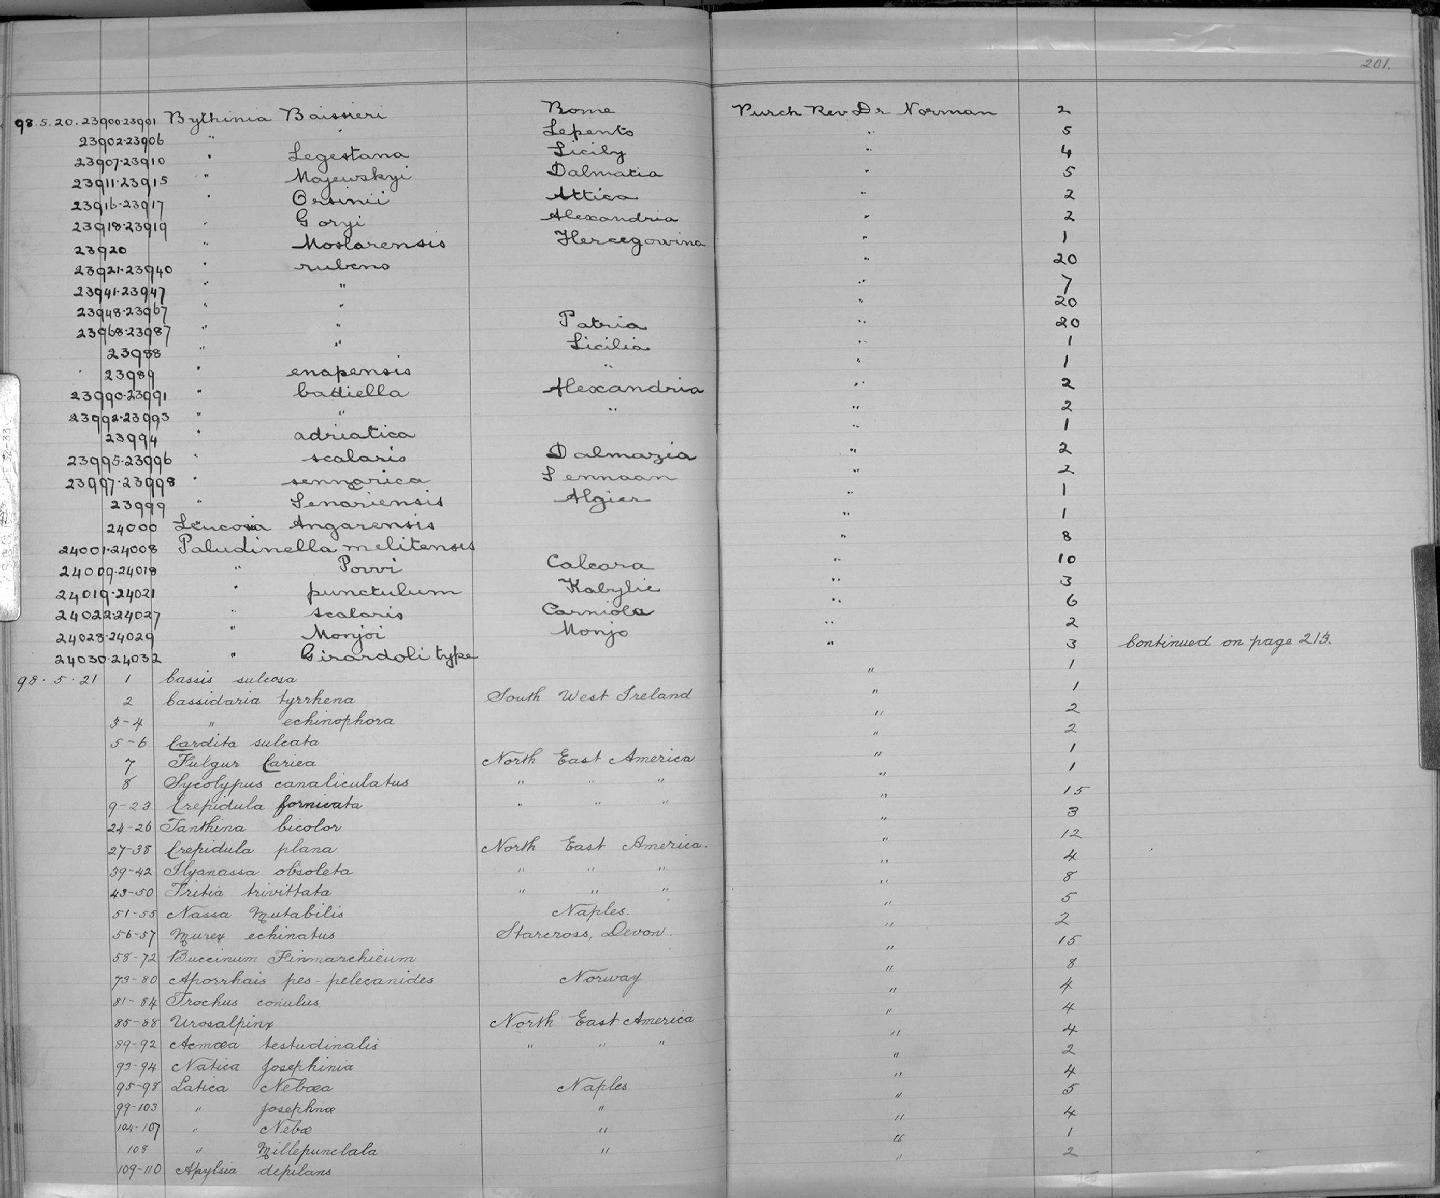 201.
98.5.20.23900.23901 Bythinia Boissieri Rome Purch Rev Dr Norman 2
23902.23906 " " Lepento " 5
23907.23910 " Segestana Sicily " 4
23911.23915 " Majewskyi Dalmatia " 5
23916.23917 " Orsinii Attica " 2
23918.23919 " Goryi Alexandria " 2
23920 " Mostarensis Hercegowina " 1
23921.23940 " rubens " 20
23941.23947 " " " 7
23948.23967 " " " 20
23968.23987 " " Patria " 20
23988 " " Sicilia " 1
23989 " enapensis " " 1
23990.23991 " badiella Alexandria " 2
23992.23993 " " " " 2
23994 " adriatica " 1
23995.23996 " scalaris Dalmazia " 2
23997.23998 " sennarica Sennaan " 2
23999 " Senariensis Algier " 1
24000 Angarensis " 1
24001.24008 Paludinella melitensis " 8
24009.24018 " Porri Calcara " 10
24019.24021 " punctulum Kabylie " 3
24022.24027 " scalaris Carniola " 6
24028.24029 " Monjoi Monjo " 2
24030.24032 " Girardoli type " 3 Continued on page 213.
98.5.21 1 Cassis sulcosa " 1
2 Cassidaria tyrrhena South West Ireland " 1
3-4 " echinophora " 2
5-6 Cardita sulcata " 2
7 Fulgur Carica North East America " 1
8 Sycotypus canaliculatus " " " " 1
9-23 Crepidula fornicata " " " " 15
24-26 Ianthina bicolor " 3
27-38 Crepidula plana North East America. " 12
39-42 Ilyanassa obsoleta " " " " 4
43-50 Tritia trivittata " " " " 8
51-55 Nassa Mutabilis Naples. " 5
56-57 Murex echinatus Starcross, Devon. " 2
58-72 Buccinum Finmarchicum " 15
73-80 Aporrhais pes-pelecanides Norway " 8
81-84 Trochus conulus " 4
85-88 Urosalpinx North East America " 4
89-92 Acmæa testudinalis " " " " 4
93-94 Natica Josephinia " 2
95-98 Latica Nebæa Naples " 4
99-103 " Josephnæ " " 5
104-107 " Nebæ " " 4
108 " Millepunclata " " 1
109-110 Apylsia depilans " 2